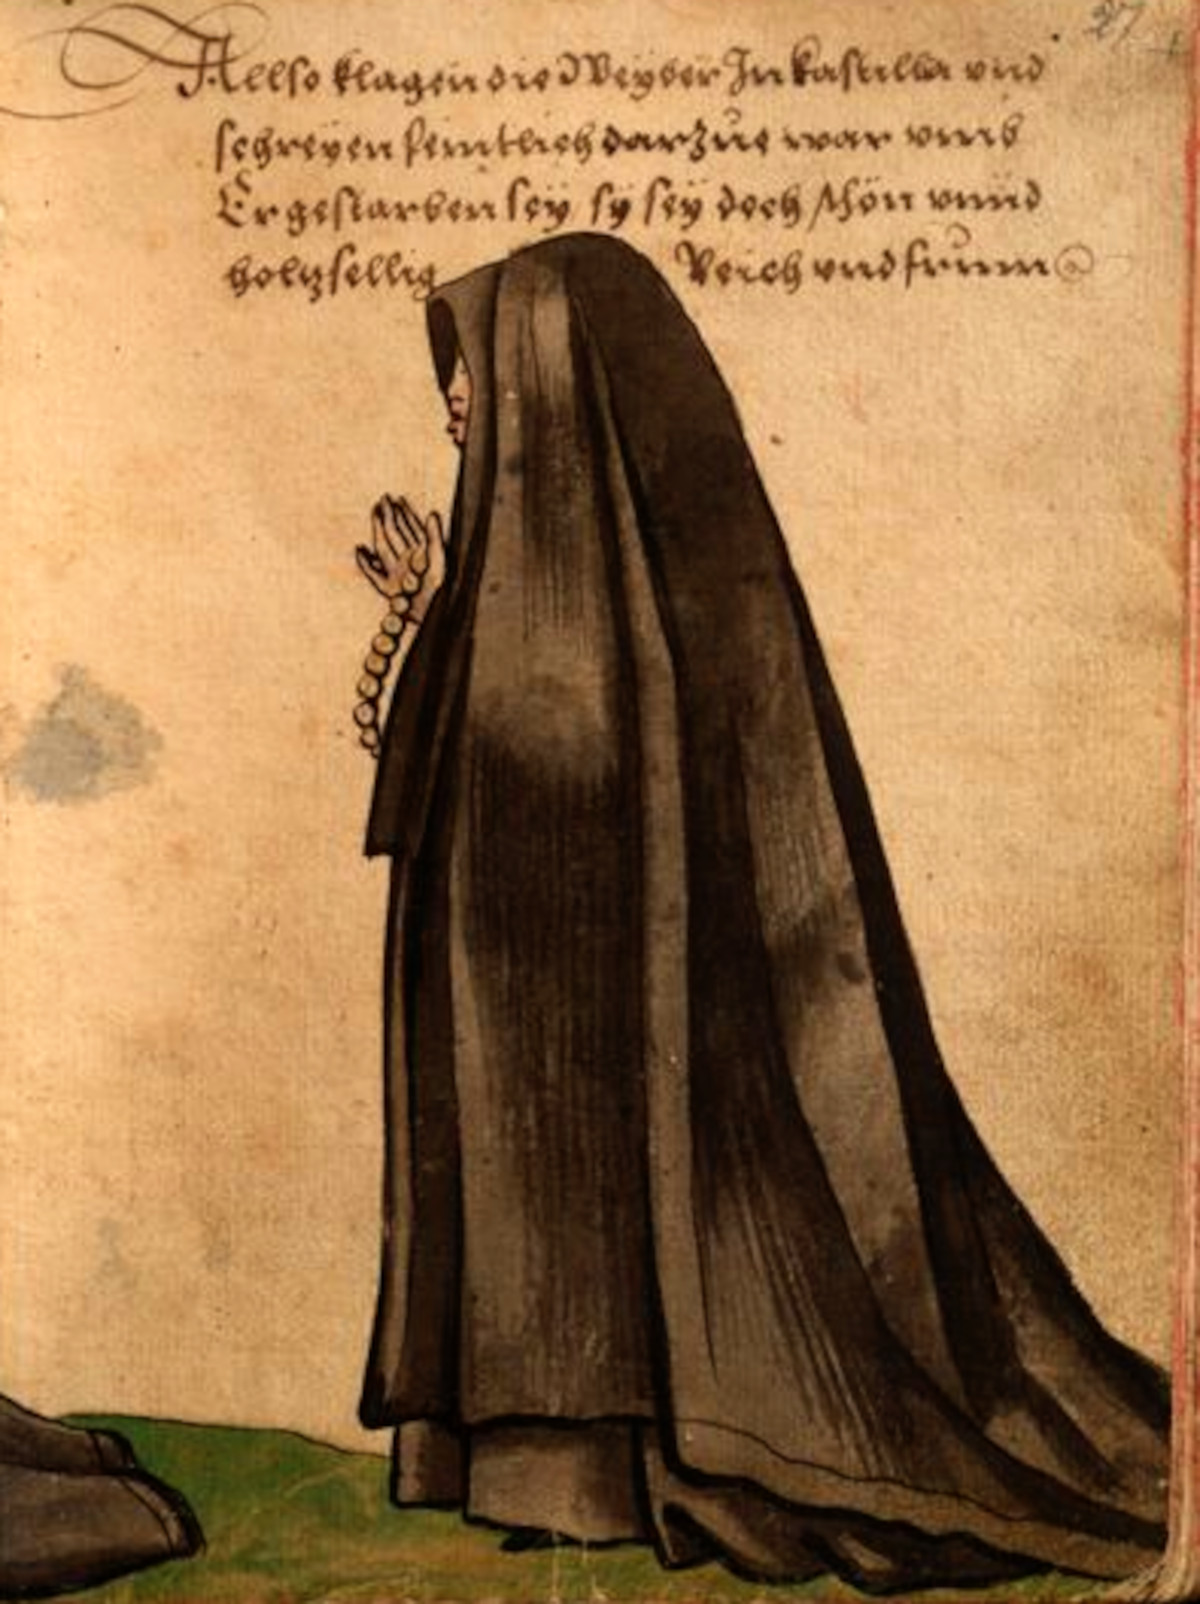 27
Allso klagen die Weyber Jn kastilia vnd
schreyen feintlich darzue war vmb
Er gestarben sey sy sey doch schön vnnd
holtzsellig Reich vnd frumm